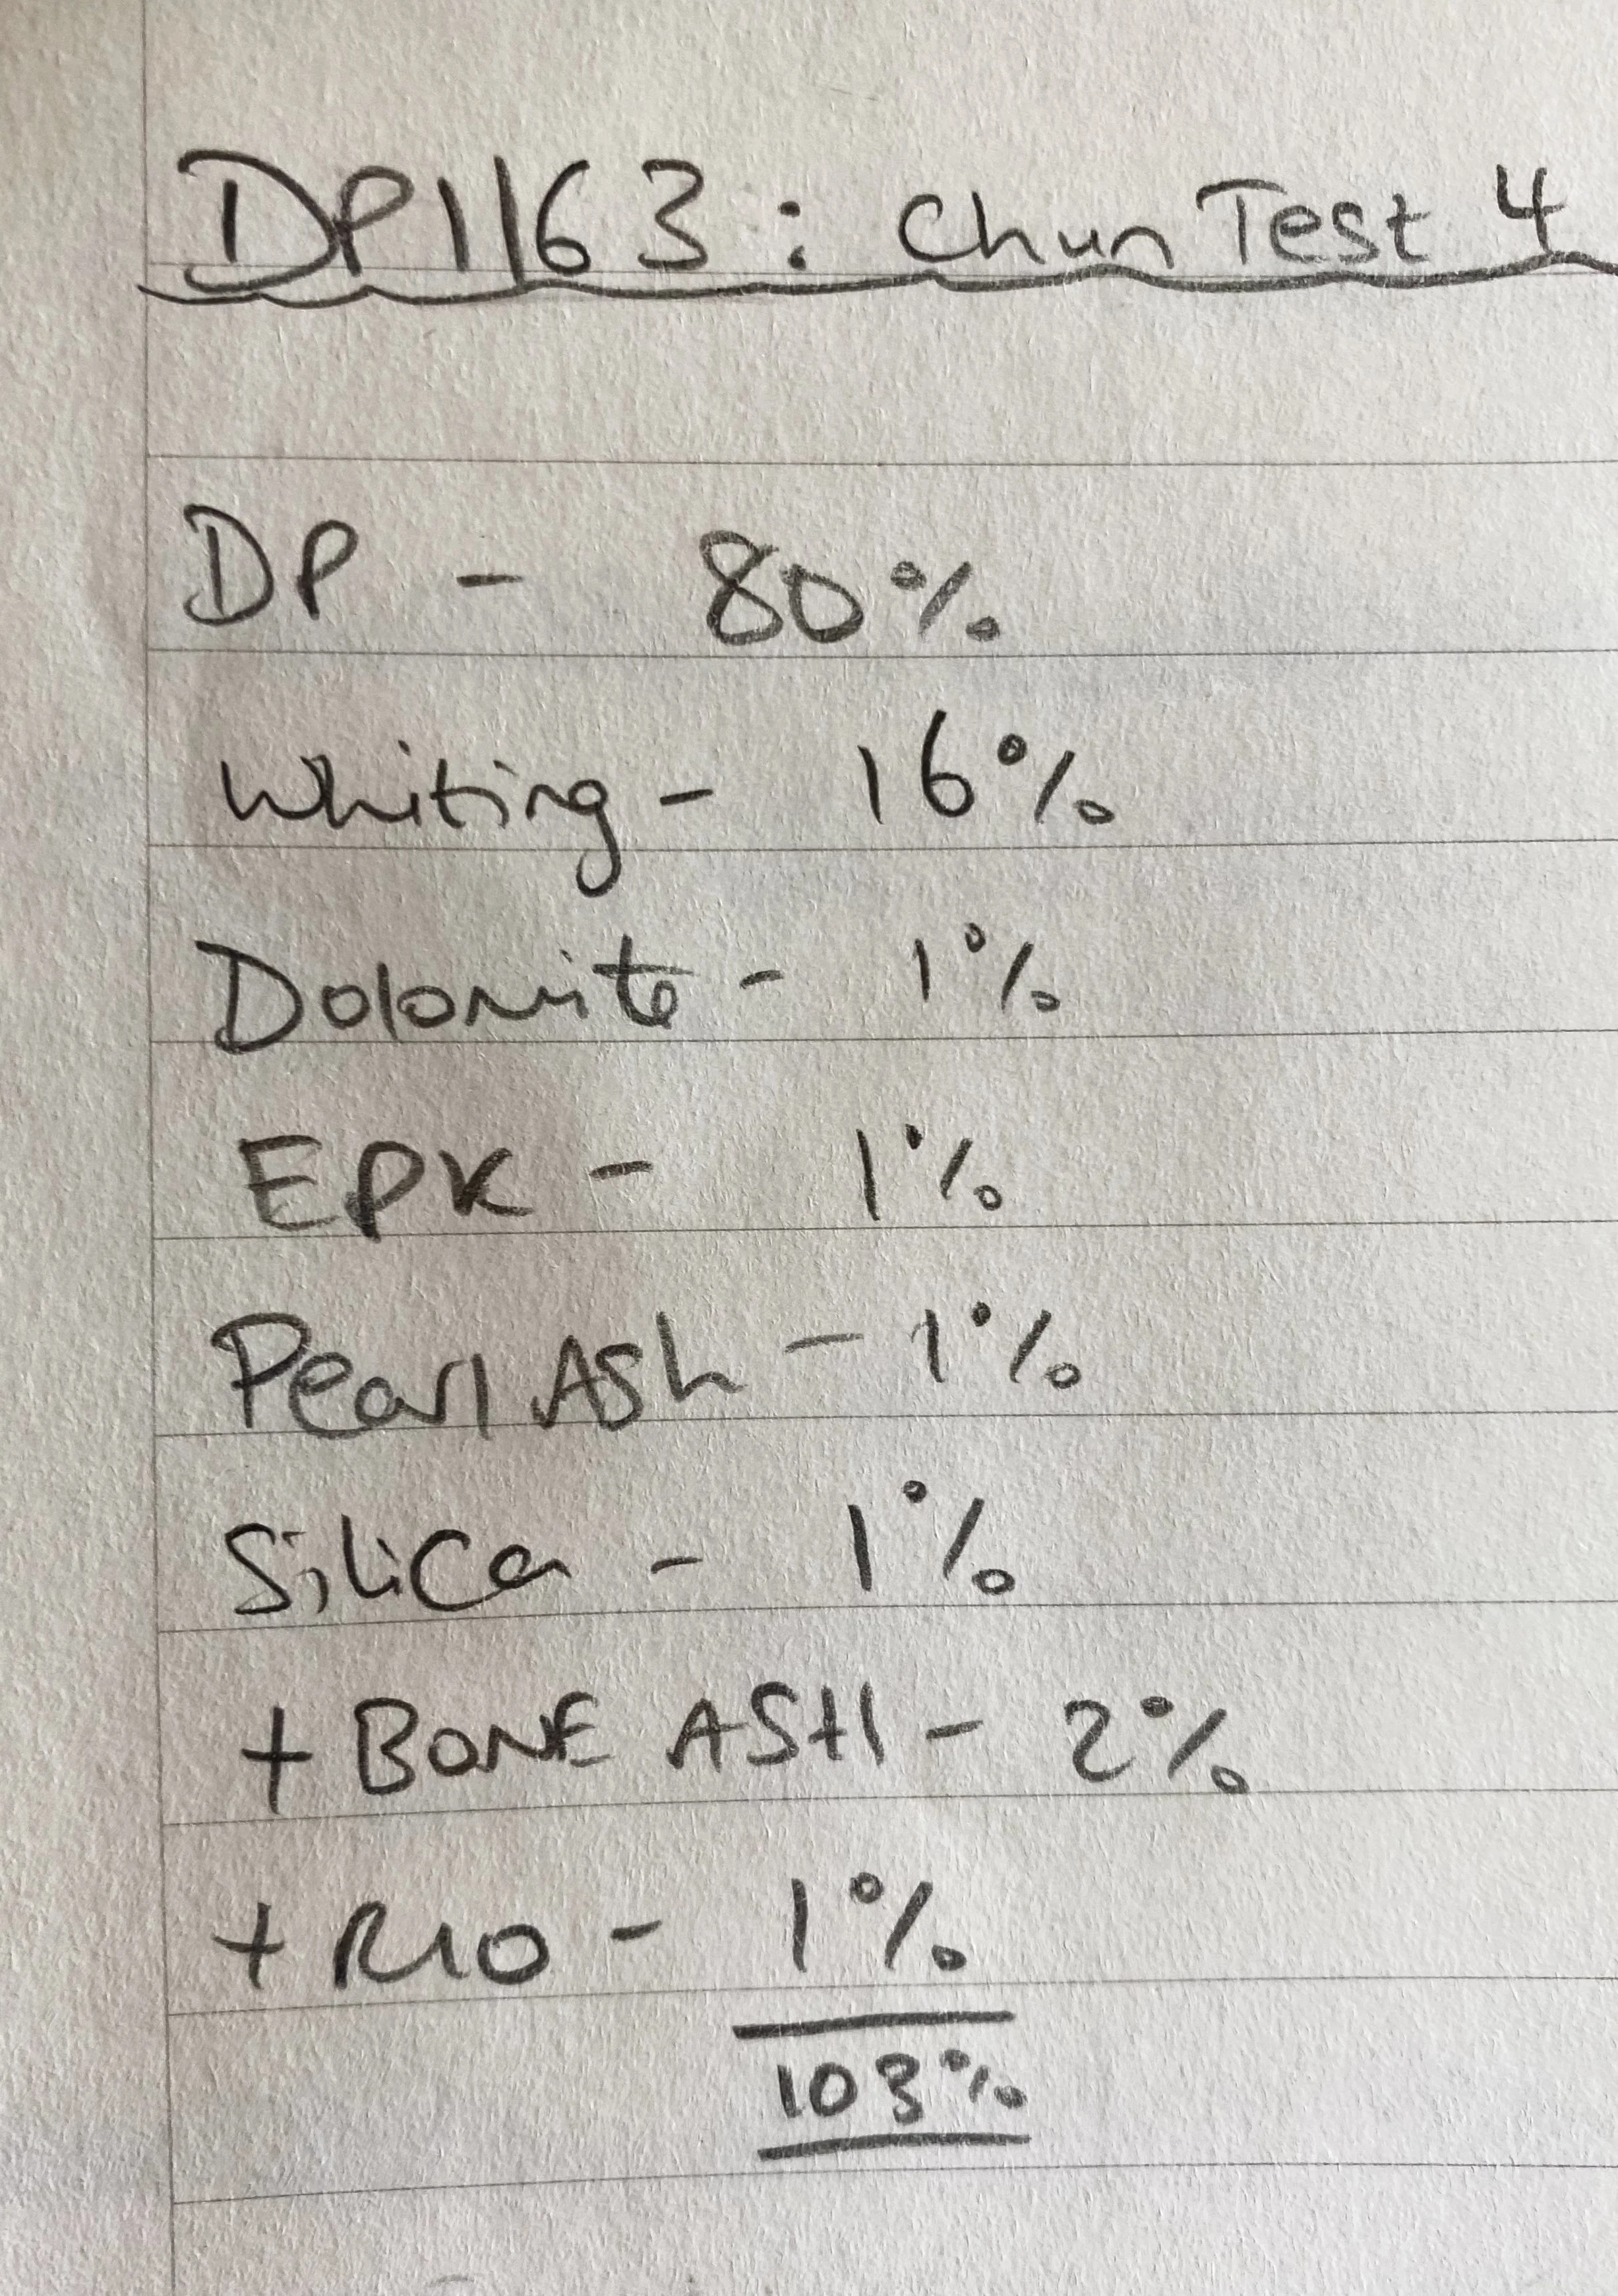 DP1163: Chun Test 4
DP - 80%
Whiting - 16%
Dolomite - 1%
EPK - 1%
Pearl Ash - 1%
Silica - 1%
+ BONE ASH - 2%
+ RIO - 1%
103%